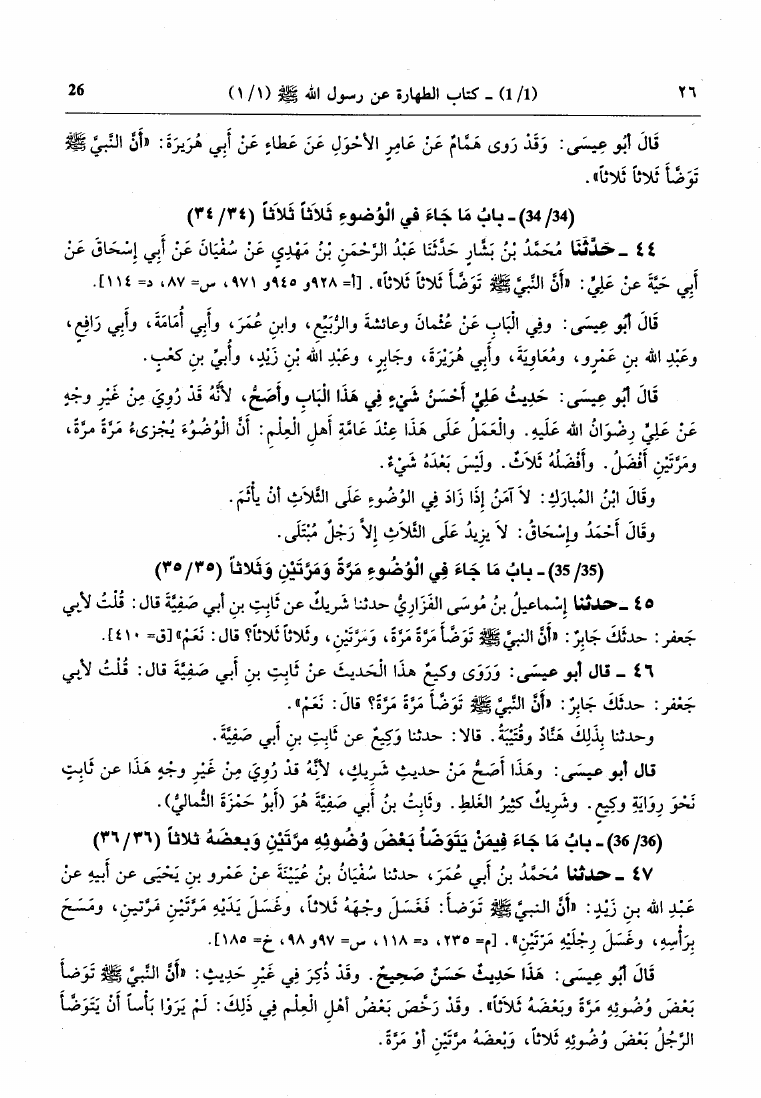 ٢٦ (1/1) ـ كتاب الطهارة عن رسول الله ﷺ (١/١) 26
قَالَ أَبُو عِيسَى: وَقَدْ رَوى هَمَّامٌ عَنْ عَامِرٍ الأَحْوَلِ عَنَ عَطاءٍ عَنْ أَبي هُرَيرَةَ: «أَنَّ النبيَّ ﷺ
تَوَضَّأَ ثَلاثاً ثَلاثاً».
(34/34) ـ بابُ مَا جَاءَ في الْوُضوءِ ثَلاَثاً ثَلاَثاً (٣٤/٣٤)
٤٤ ـ حَدَّثَنَا مُحَمَّدُ بْنُ بَشَّارٍ حَدَّثَنَا عَبْدُ الرَّحْمَنِ بْنُ مَهْدِي عَنْ سُفْيَانَ عَنْ أَبي إسْحَاقَ عَنْ
أَبي حَيَّةَ عنْ عَلِيٍّ: «أَنَّ النَّبيَّ ﷺ تَوَضَّأَ ثلاثاً ثلاثاً». [أ= ٩٢٨و ٩٤٥و ٩٧١، س= ٨٧، د= ١١٤].
قَالَ أَبُو عيسَى: وفي الْبَابِ عَنْ عُثمانَ وعائشةَ والرُّبَيِّعِ، وابنِ عُمَرَ، وأَبي أُمَامَةَ، وأَبي رَافِعٍ،
وعَبْدِ الله بنِ عَمْرٍو، ومُعَاوِيَةَ، وأَبي هُرَيْرَةَ، وجَابِرٍ، وعَبْدِ الله بْنِ زَيْدٍ، وأُبيِّ بنِ كَعْبٍ.
قَالَ أَبُو عيسَى: حَدِيثُ عَلِيٍّ أَحْسَنُ شَيْءٍ فِي هَذَا الْبَابِ وأَصَحُّ، لأَنَّهُ قَدْ رُوِيَ مِنْ غَيْرِ وجْهٍ
عَنْ عَلِيٍّ رِضْوَانُ الله عَلَيهِ. والْعَمَلُ عَلَى هَذَا عِنْدَ عَامَّةِ أَهلِ الْعِلْمِ: أَنَّ الْوُضُوءَ يُجْزِىءُ مَرَّةً مرَّةً،
ومَرَّتَيْنِ أَفْضَلُ. وأَفْضَلُهُ ثَلاَثٌ. ولَيْسَ بَعْدَهُ شَيْءٌ.
وقَالَ ابْنُ المُبَارَكِ: لاَ آمَنُ إذَا زَادَ فِي الوُضُوءِ عَلَى الثَّلاَثِ أنْ يأْثَمَ.
وقَالَ أَحْمَدُ وإسْحَاقُ: لاَ يَزِيدُ عَلَى الثَّلاَثِ إلاَّ رَجُلٌ مُبْتَلَى.
(35/35) ـ بابُ مَا جَاءَ في الْوُضُوءِ مَرَّةً وَمَرَّتَيْنِ وَثَلاثاً (٣٥/٣٥)
٤٥ ـ حدثنا إسْماعيلُ بنُ مُوسَى الفَزَارِيُّ حدثنا شَريكٌ عن ثَابِتِ بنِ أبي صَفِيَّةَ قال: قُلْتُ لأبي
جَعفر: حدثَكَ جَابِرٌ: «أَنَّ النبيَّ ﷺ تَوَضَّأَ مَرَّةً مَرَّةً، ومَرَّتَيْنِ، وثلاثاً ثلاثاً؟ قال: نَعَمْ»[ق= ٤١٠].
٤٦ ـ قال أبو عيسَى: وَرَوَى وكيعٌ هذَا الْحَديثَ عنْ ثَابِتِ بنِ أَبي صَفِيَّةَ قال: قُلْتُ لأَبي
جَعْفر: حدثَكَ جَابِرٌ: «أَنَّ النَّبيَّ ﷺ تَوَضَّأَ مَرَّةً مَرَّةً؟ قالَ: نَعَمْ».
وحدثنا بِذَلِكَ هَنَّادٌ وقُتَيْبَةُ. قالا: حدثنا وَكِيعٌ عن ثَابِتِ بنِ أَبي صَفِيَّةَ.
قال أبو عيسَى: وهَذَا أَصَحُّ مَنْ حديثِ شَريكٍ، لأَنَّهُ قدْ رُوِيَ مِنْ غَيْرِ وجهٍ هَذَا عن ثَابِتٍ
نَحْوَ رِوَايَةِ وكِيعٍ. وشَرِيكٌ كثِيرُ الغَلطِ. وثَابِتُ بنُ أَبي صَفِيَّةَ هُوَ (أَبوُ حَمْزَةَ الثُّماليُّ).
(36/36) ـ بابُ مَا جَاءَ فِيمَنْ يَتَوَضَّأُ بَعْضَ وُضُوئِهِ مرَّتَيْنِ وَبعضَهُ ثلاثاً (٣٦/٣٦)
٤٧ ـ حدثنا مُحَمَّدُ بنُ أَبي عُمَرَ، حدثنا سُفْيَانُ بنُ عُيَيْنَةَ عنْ عَمْرِو بنِ يَحْيَى عن أَبيهِ عنْ
عَبْدِ الله بنِ زَيْدٍ: «أَنَّ النبيَّ ﷺ تَوَضأَ: فَغَسَلَ وجْهَهُ ثَلاثاً، وغَسَلَ يَدَيْهِ مَرَّتَيْنِ مَرَّتينِ، ومَسَحَ
بِرَأْسِهِ، وغَسَلَ رِجْلَيْهِ مَرَّتَيْنِ». [م= ٢٣٥، د= ١١٨، س= ٩٧و ٩٨، خ= ١٨٥].
قَالَ أَبُو عِيسَى: هَذَا حَدِيثٌ حَسَنٌ صَحِيحٌ. وقَدْ ذُكِرَ فِي غَيْرِ حَدِيثٍ: «أَنَّ النَّبيَّ ﷺ تَوَضأَ
بَعْضَ وُضُوئِهِ مَرَّةً وبَعْضَهُ ثَلاَثاً». وقَدْ رَخَّصَ بَعْضُ أَهْلِ الْعِلْمِ في ذَلِكَ: لَمْ يَرَوْا بَأْساً أَنْ يَتَوَضَّأَ
الرَّجُلُ بَعْضَ وُضُوئِهِ ثَلاثاً، وَبَعْضَهُ مرَّتَيْنِ أَوْ مَرَّةً.